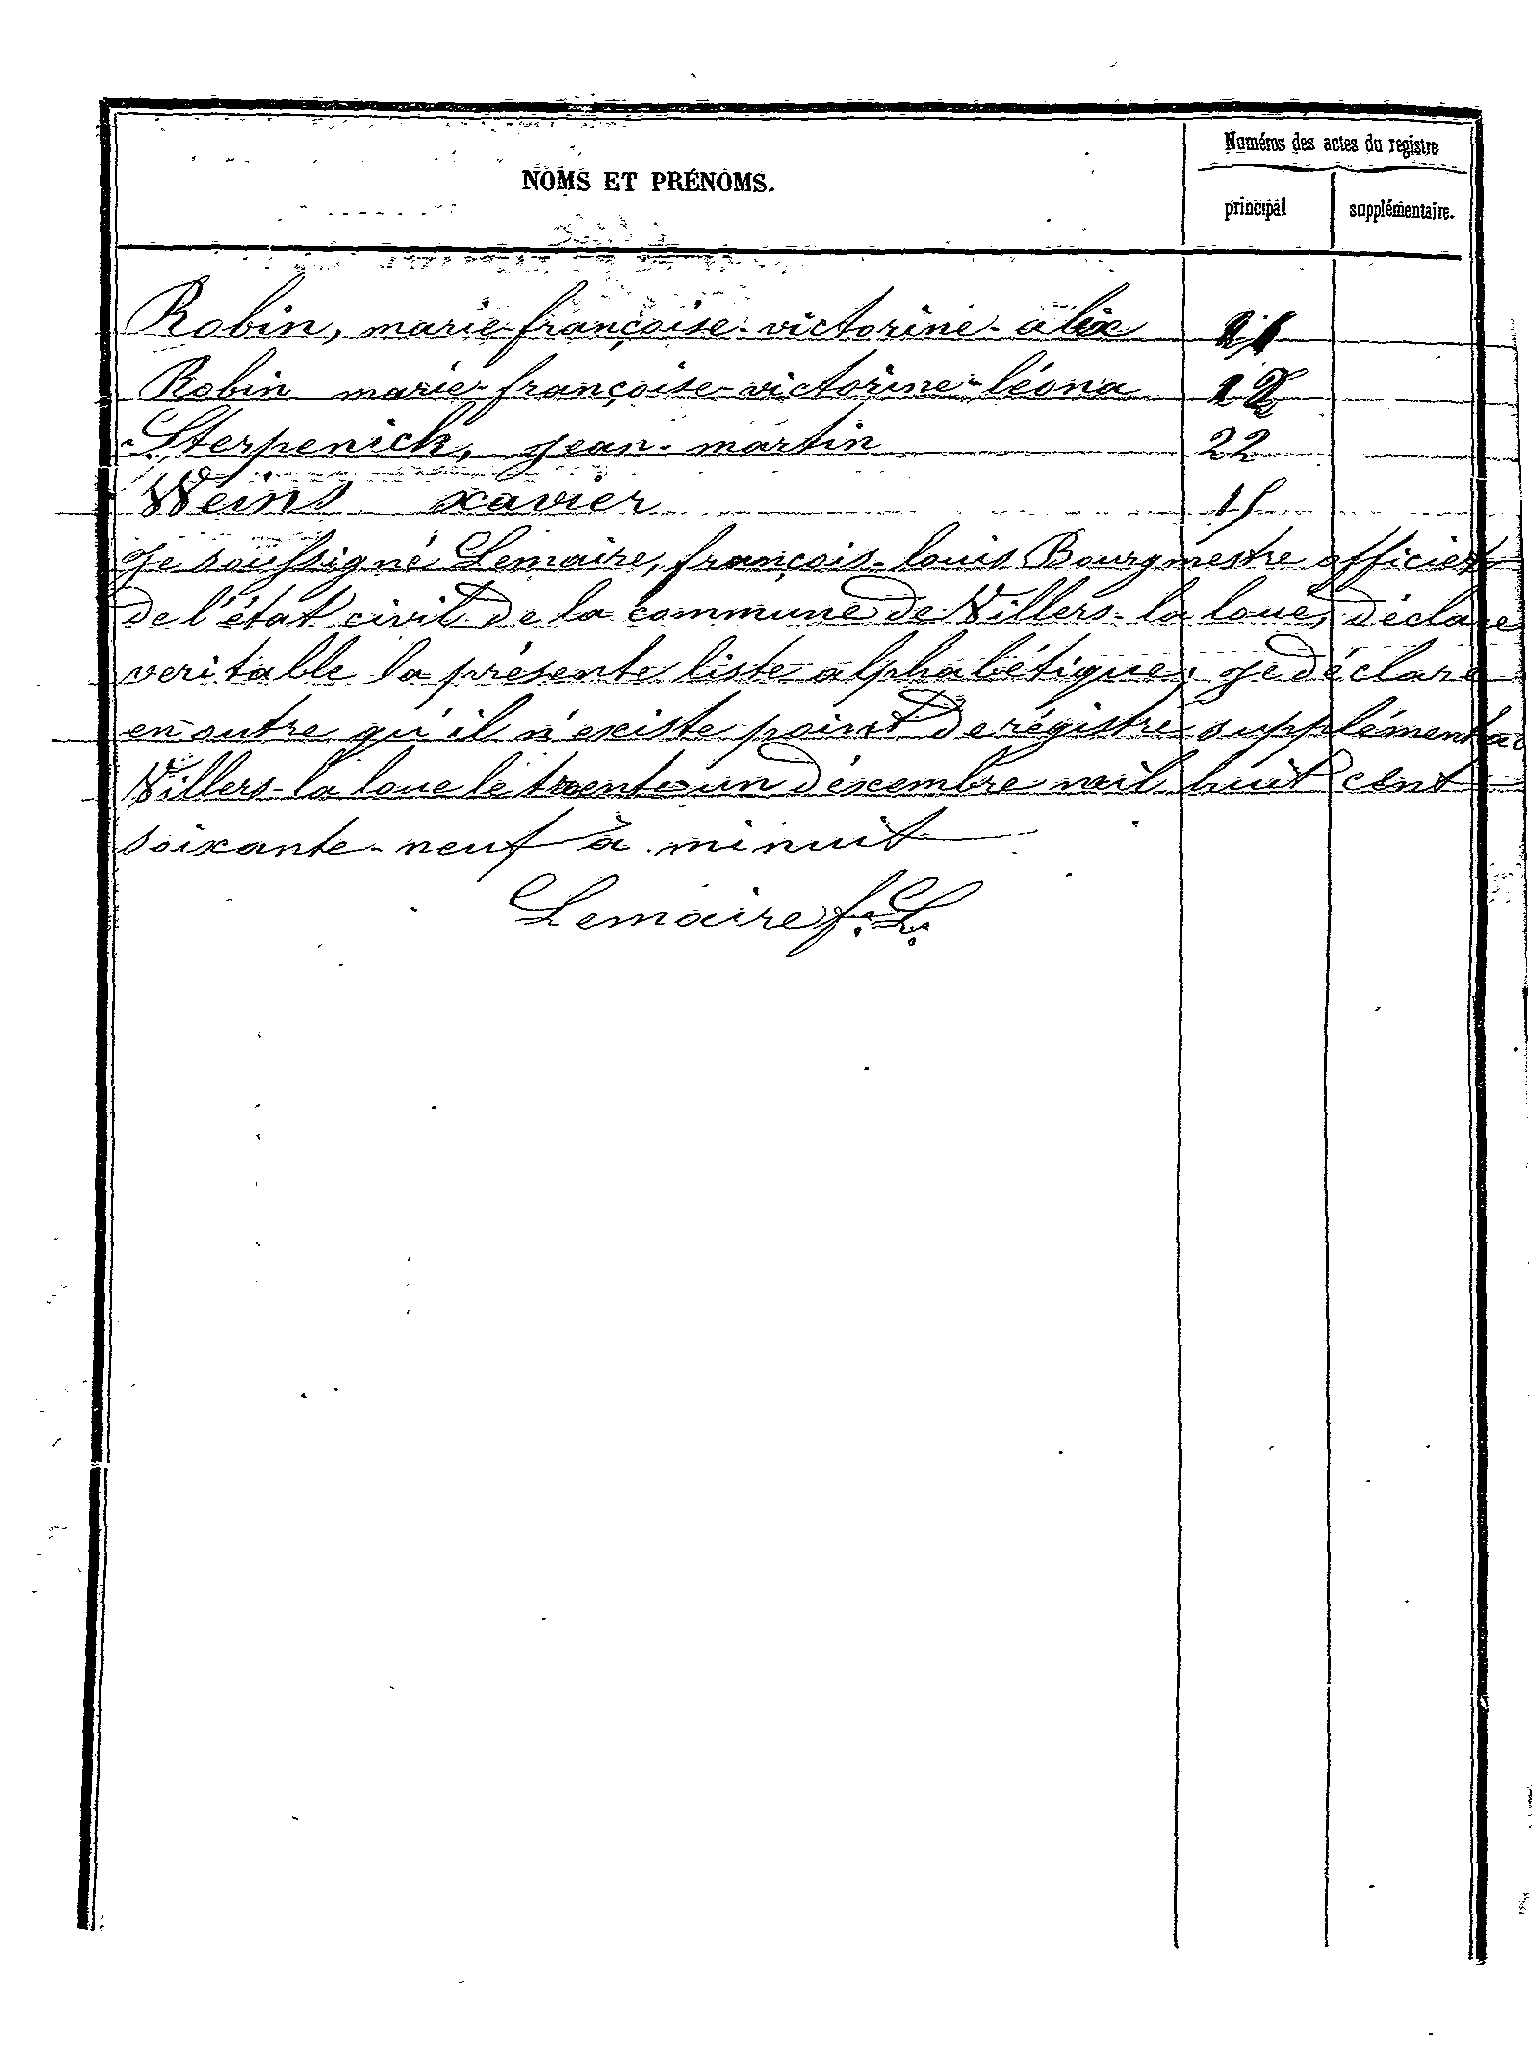 NOMS ET PRÉNOMS.
Numéros des actes du registre
principal
supplémentaire.
Robin, marie-françoise-victorine-alix
Robin marie-françoise-victorine-léona 12
Sterpenick, Jean-martin 22
Weins xavier 15
Je soussigné Lemaire, françois-louis Bourgmestre officier
de l'état civil de la commune de Villers-la loue, déclare
veritable la présente liste alphabétique; Je déclare
en outre qu'il n'existe point de régistre supplémentai
Villers-la loue le trente-un décembre mil huit cent
soixante-neuf à minuit
Lemaire f. L.